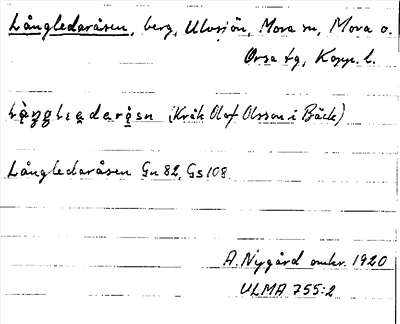 Långledaråsen, berg, Ulvsjön, Mora sn, Mora o.
Orsa tg, Kopp. l.
(Kråk Olof Olsson i Bäck)
Långledaråsen Gn 82, Gs 108.
A. Nygård omkr. 1920
ULMA 755:2